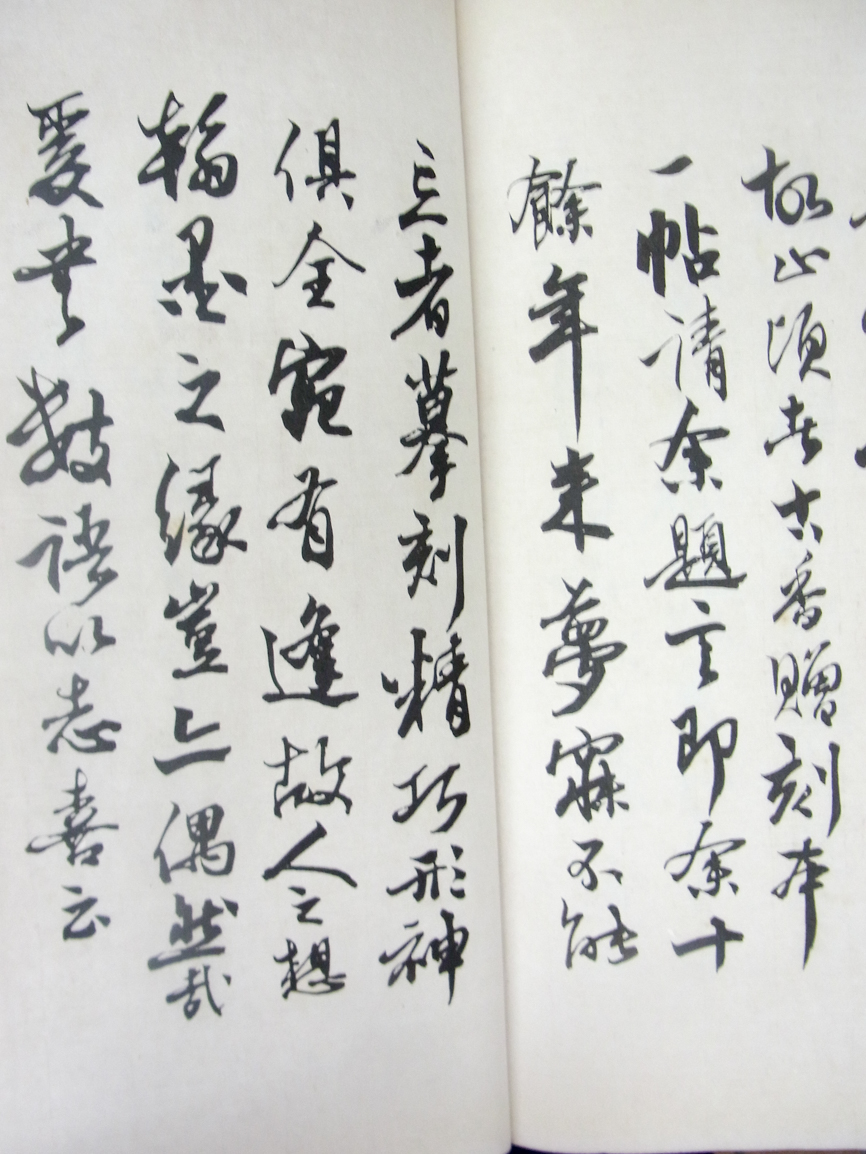 故山頃者古香贈刻本
一帖請余題言即余十
餘年来夢寐不能
忘者摹刻精巧形神
俱全宛有逢故人之想
翰墨之縁豈亦偶然哉
爰書數語以志喜云